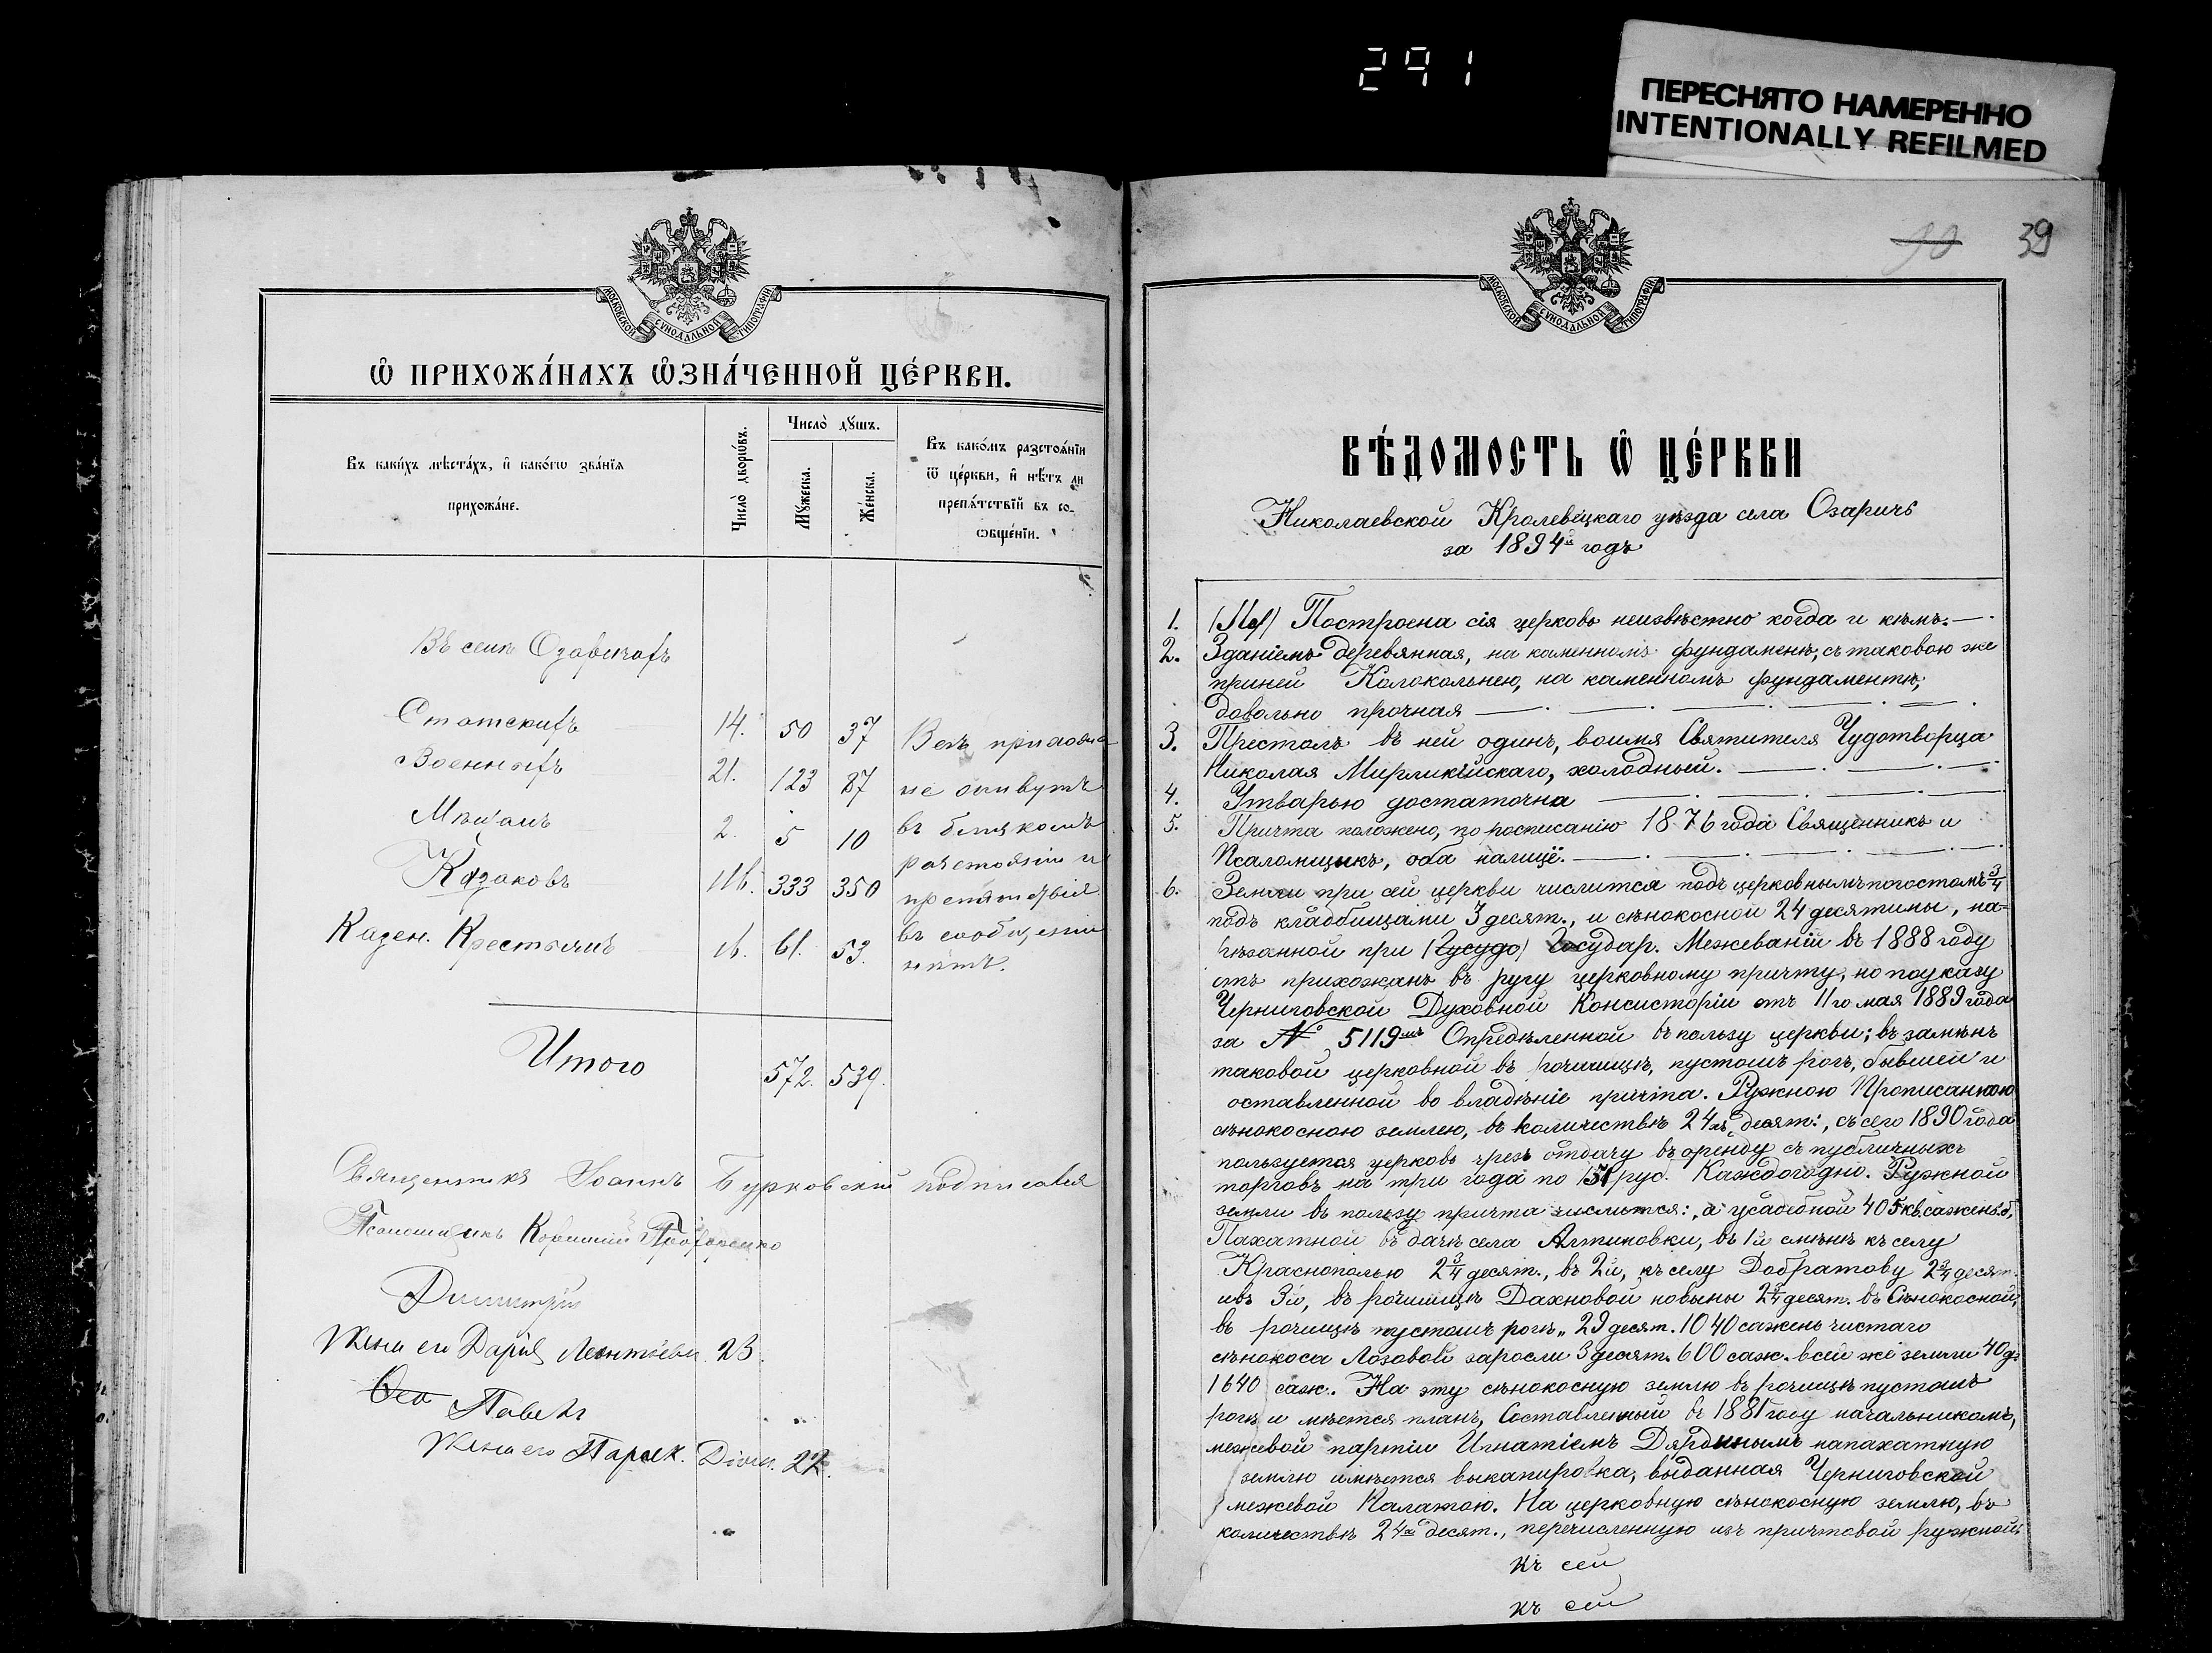 291
ПЕРЕСНЯТО НАМЕРЕННО
INTENTIONALLY REFILMED
МОСКОВСКОЙ СѴНОДАЛЬНОЙ ТИПОГРАФІИ
Ѽ ПРИХОЖА́НАХЪ Ѡ҆ЗНА́ЧЕННОЙ ЦЕ́РКВИ.
Въ каки́хъ мѣста́хъ, и҆ како́гѡ зва́нїѧ
прихожа́не.
Число̀ дворѡ́въ.
Число̀ дꙋшъ.
Мꙋ́жеска.
Же́нска.
Въ како́мъ разстоѧ́нїи
ѿ це́ркви, и҆ нѣ́тъ ли
препѧ́тствїй въ со-
ѻбще́нїи.
Въ селѣ Озаричахъ
Статскихъ 14. 50 37
Военныхъ 21. 123 87
Мѣщанъ 2. 5 10
Казаковъ 116. 333 350
Казен. Крестьянъ 16. 61. 53.
Всѣ прихожа
не живутъ
въ близкомъ
разстояніи и
препятствія
въ сообщеніи
нѣтъ.
Итого 572. 539.
Священникъ Іоаннъ Бурковскій подписался
Псаломщикъ
Димитрій
Жена его Дарія Леонтіева 23.
Ѳео Павелъ
Жена его Параск. 22.
39
МОСКОВСКОЙ СѴНОДАЛЬНОЙ ТИПОГРАФІИ
ВѢ́ДОМОСТЬ Ѽ ЦЕ́РКВИ
Николаевской Кролевецкаго уѣзда села Озаричъ
за 1894й годъ
1. Построена сія церковь неизвѣстно когда и кѣмъ.
2. Зданіемъ деревянная, на каменномъ фундаментѣ, съ таковою же
при ней Колокольнею, на каменномъ фундаментѣ,
довольно прочная
3. Престолъ въ ней одинъ, во имя Святителя Чудотворца
Николая Мирликійскаго, холодный.
4. Утварью достаточна
5. Причта положено, по росписанію 1876 года Священникъ и
Псаломщикъ, оба налицё.
6. Земли при сей церкви числится подъ церковнымъ погостомъ 3/4
подъ кладбищами 3 десят., и сѣнокосной 24 десятины, на-
рѣзанной при (Гусудо) Государ. Межеваніи въ 1888 году
отъ прихожанъ въ ругу церковному причту, но по указу
Черниговской Духовной Консисторіи отъ 11го мая 1889 года
за № 5119мъ Опредѣленной въ пользу церкви; въ замѣнъ
таковой церковной въ рочищѣ, пустомъ рогѣ, бывшей и
оставленной во владѣніе причта. Ружною Прописанною
сѣнокосною землею, въ количествѣ 24хъ десят:, съ сего 1890 года
пользуется церковь чрезъ отдачу въ аренду съ публичныхъ
торговъ на три года по 151 руб. Каждогодно. Ружной
земли въ пользу причта числится: а, усадебной 405 кв. сажень. б,
Пахатной въ дачѣ села Алтиновки, въ 1й смѣнѣ къ селу
Краснополью 2 3/4 десят., въ 2й, къ селу Добратову 2 3/4 десят.
и въ 3й, въ рочищѣ Дахновой новыны 2 3/4 десят. въ Сѣнокосной,
въ рочищѣ пустомъ рогѣ „ 29 десят. 1040 сажень чистаго
сѣнокоса Лозовой заросли 3 десят. 600 саж. всей же земли 40 дес
1640 саж. На эту сѣнокосную землю въ рочищѣ пустомъ
рогѣ и мѣется планъ, Составленный въ 1881 году начальникомъ,
межевой партіи Игнатіемъ Дярдинымъ на пахатную
землю имѣется выкапировка, выданная Черниговской
межевой Палатою. На церковную сѣнокосную землю, въ
количествѣ 24хъ десят., перечисленную изъ причтовой ружной,
къ сей
къ сей